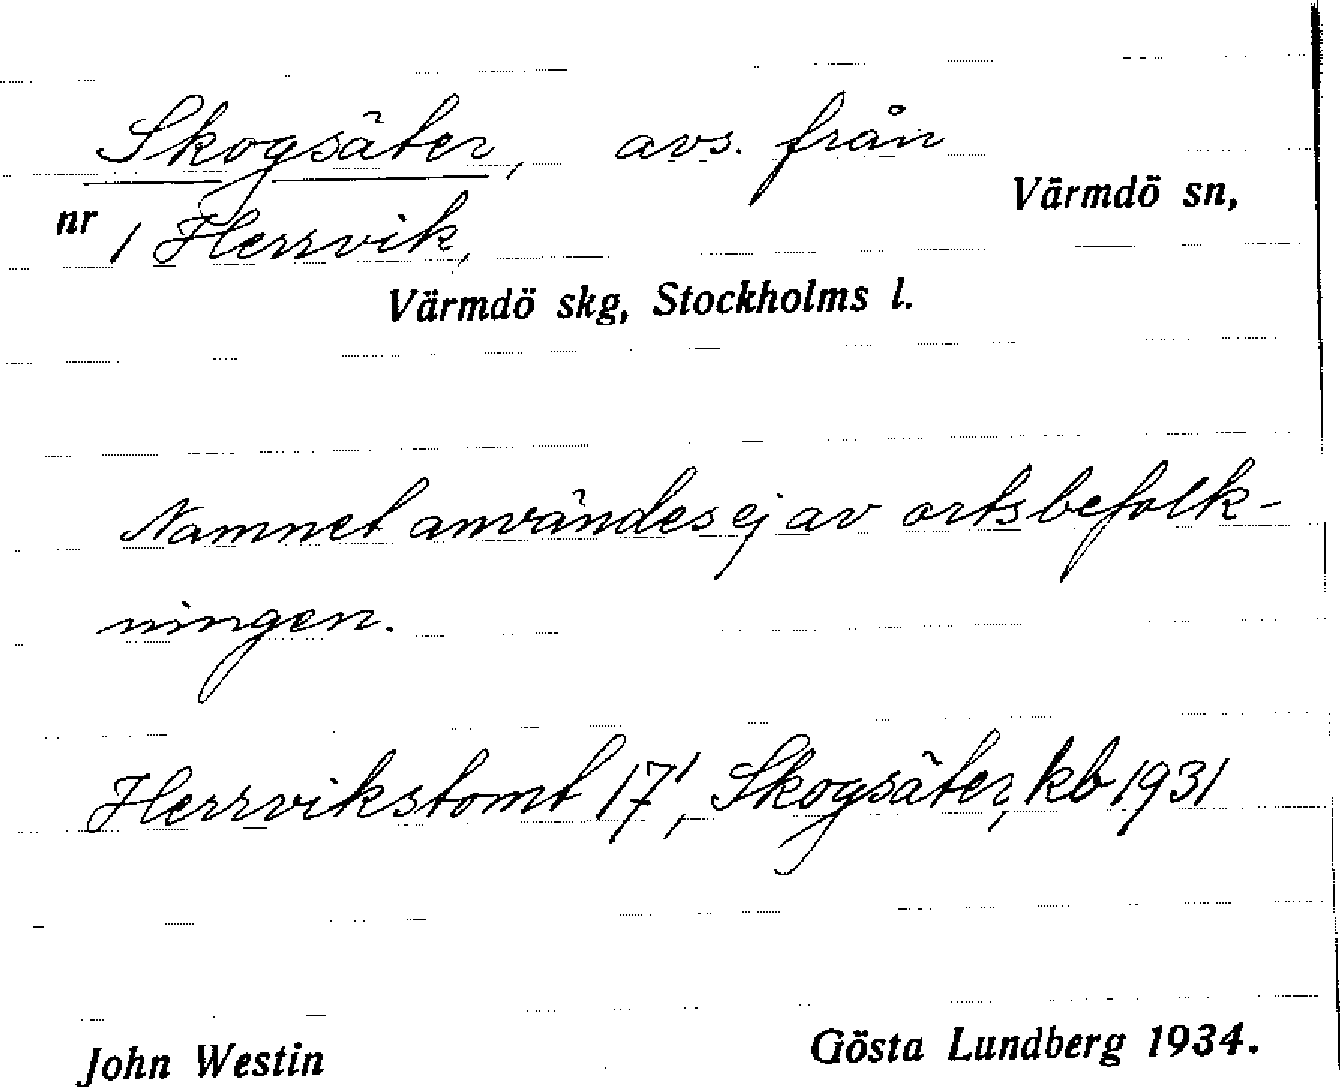 Skogsäter, avs. från
Värmdö sn,
nr 1 Herrvik,
Värmdö skg, Stockholms l.
Namnet användes ej av ortsbefolk-
ningen.
Herrvikstomt 17', Skogsäter, kb 1931
John Westin
Gösta Lundberg 1934.